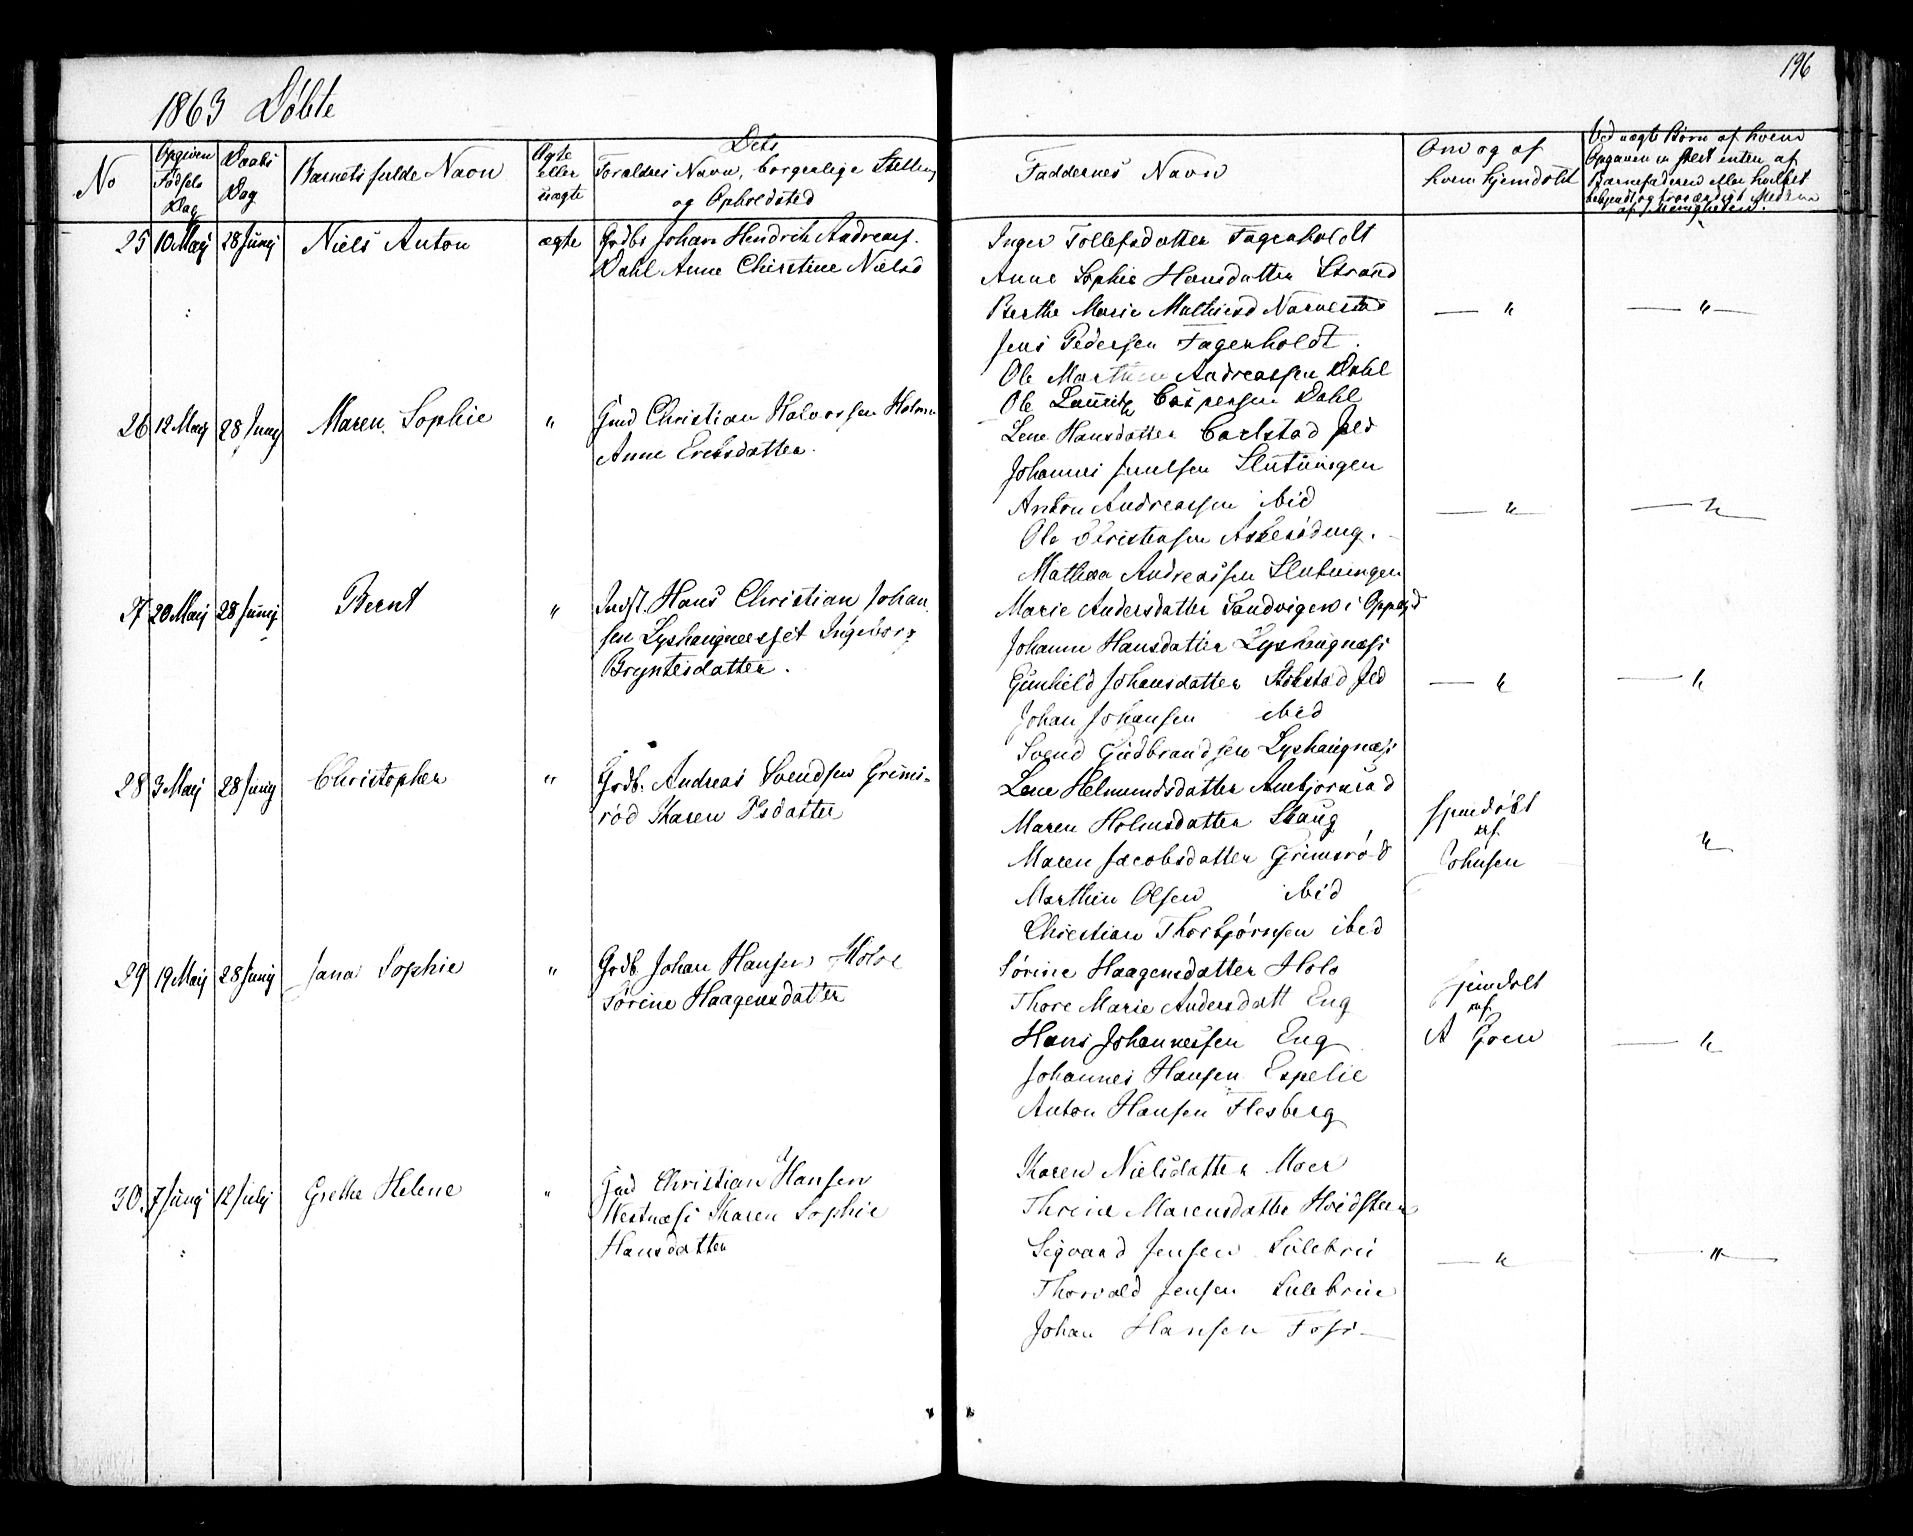 196
1863 Døbte
No
Opgiven Fødsels Dag
Daabs Dag
Barnets fulde Navn
Ægte eller uægte
Dets
Foraldres Navn, borgerlige Stilling
og Opholdsted
Faddernes Navn
Om og af
hvem hjemdøbt
Ved uægte Børn af hvem
Opgaven er skeet enten af
Barnefaderen ellerholst
bekjendt og troværdigt Medlem
af Menigheden.
25 10 Maij 28 Junij Niels Anton ægte Grdbr Johan Hendrik Andreass.
Dahl Anne Christine Nielsd
Inger Tollefsdatter Fagerholdt
Anne Sophie Hansdatter Strand
Berthe Marie Mathiesd Narvestad — " — " —
Jens Pedersen Fagerholdt.
Ole Andreassen Dahl
Ole Lauritz Caspersen Dahl
26 12 Maij 28 Junij Maren Sophie " Gmd Christian Halvorsen Holmen
Anne Ericsdatter.
Lene Hansdatter Carlstad Jeld
Johannes Juulsen Slutningen
Anton Andreassen ibid — " — " —
Ole Christensen
Mathea Andreassen Slutningen
27 20 Maij 28 Junij Bernt " Indst. Hans Christian Johan
sen Lyshaugneeset Ingeborg
Bryntesdatter.
Marie Andersdatter Sandvigen i Oppegd
Johanne Hansdatter Lyshaugnæss
Gunhild Johansdatter Stokstad Jeld — " — "
Johan Johansen ibid
Svend Gudbrandsen Lyshaugnæss
28 3 Maij 28 Junij Christopher " Grdb. Andreas Svendsen Grims-
rød Karen Psdatter
Lene Helmundsdatter Ambjørnrød
Maren Holmsdatter Skaug
Maren Jacobsdatter Grimsrød
Marthin Olsen ibid
Christian Thorbjørnsen ibid
Hjemdøbt
af
Johnsen
"
29 19 Maij 28 Junij Jana Sophie " Grdb Johan Hansen Hole
Sørine Haagensdatter
Sørine Haagensdatter Hole
Thore Marie Andersdatt Eng
Hans Johannessen Eng
Johannes Hansen Espelie
Anton Hansen Flesberg
Hjemdøbt
af
A Groen
— "
30. 7 Junij 12 Julij Grethe Helene " Gmd Christian Hansen
Westnæss Karen Sophie
Hansdatter
Karen Nielsdatter Moer
Thrine Marensdatter Hvidsteen
Sigvard Jensen Sulebrii — " — " —
Thorvald Jensen Sulebrue
Johan Hansen Foss